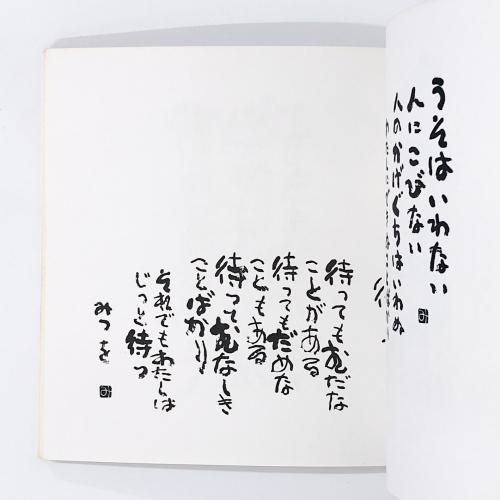 うそはいわない
人にこびない
人のかげぐちはいわぬ
待ってもむだな
ことがある
待ってもだめな
こともある
待ってむなしき
ことばかり
それでもわたしは
じっと待つ
みつを